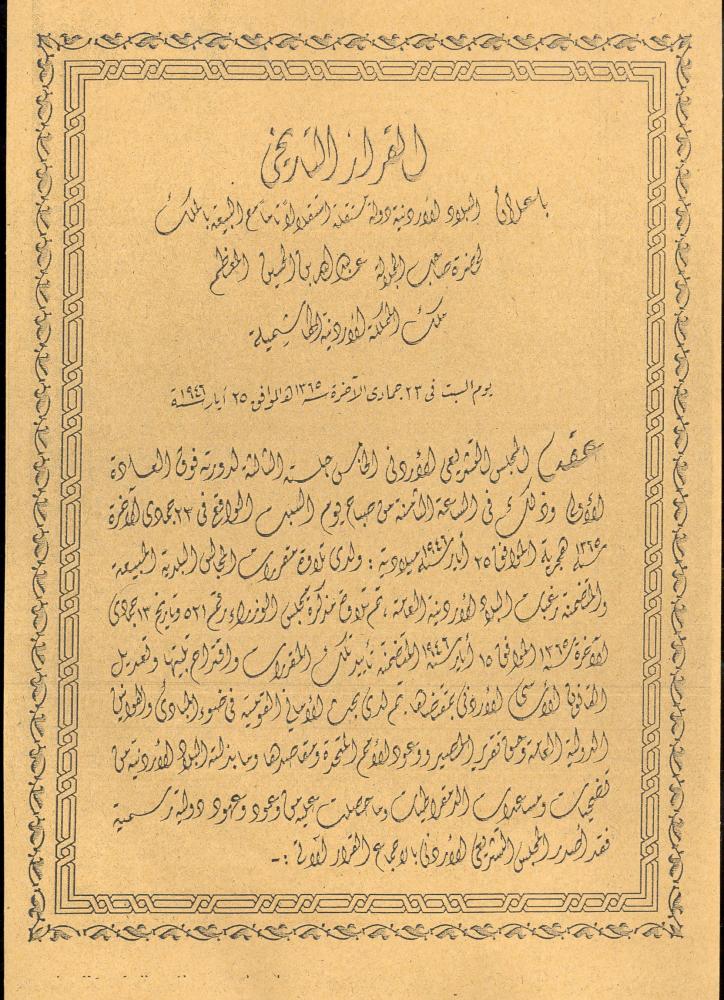 القرار التاريخي
باعلان البلاد الأردنية دولة مستقلة استقلالاً تاماً مع البيعة بالملك
لحضرة صاحب الجلالة عبدالله بن الحسين المعظم
ملك المملكة الأردنية الهاشمية
يوم السبت في ٢٣ جمادى الآخرة سنة ١٣٦٥ هـ الموافق ٢٥ أيار سنة ١٩٤٦
عقد المجلس التشريعي الأردني الخامس جلسته الثالثة لدورته فوق العادة
الأولى وذلك في الساعة الثامنة من صباح يوم السبت الواقع في ٢٣ جمادى الآخرة
سنة ١٣٦٥ هجرية الموافق ٢٥ أيار سنة ١٩٤٦ ميلادية : ولدى تلاوة مقررات المجالس البلدية المبيعة
والمتضمنة رغبات البلاد الأردنية العامة ، تم تلاوة مذكرة مجلس الوزراء رقم ٥٢١ وتاريخ ١٣ جمادى
الآخرة سنة ١٣٦٥ الموافق ١٥ أيار سنة ١٩٤٦ المتضمنة تأييد تلك المقررات واقتراح تلبيتها وتعديل
القانون الأساسي الأردني بمقتضاها . ثم لدى بحث الأماني القومية في ضوء المبادئ والمواثيق
الدولية العامة وحق تقرير المصير ووعود الأمم المتحدة ومقاصدها وما بذلته البلاد الأردنية من
تضحيات ومساعدات الدمقراطيات وما حصلت عليه من وعود وعهود دولية رسمية
فقد أصدر المجلس التشريعي الأردني بالاجماع القرار الآتي :-